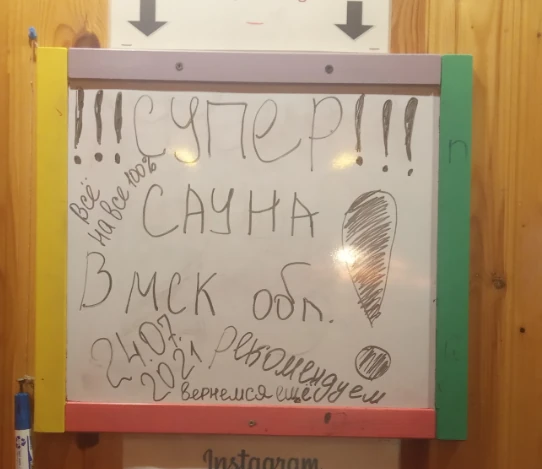 !!! СУПЕР!!!
Всё
на все 100%
САУНА
В МСК обл. !
24.07.
2021
Рекомендуем
Вернемся ещё
Instagram